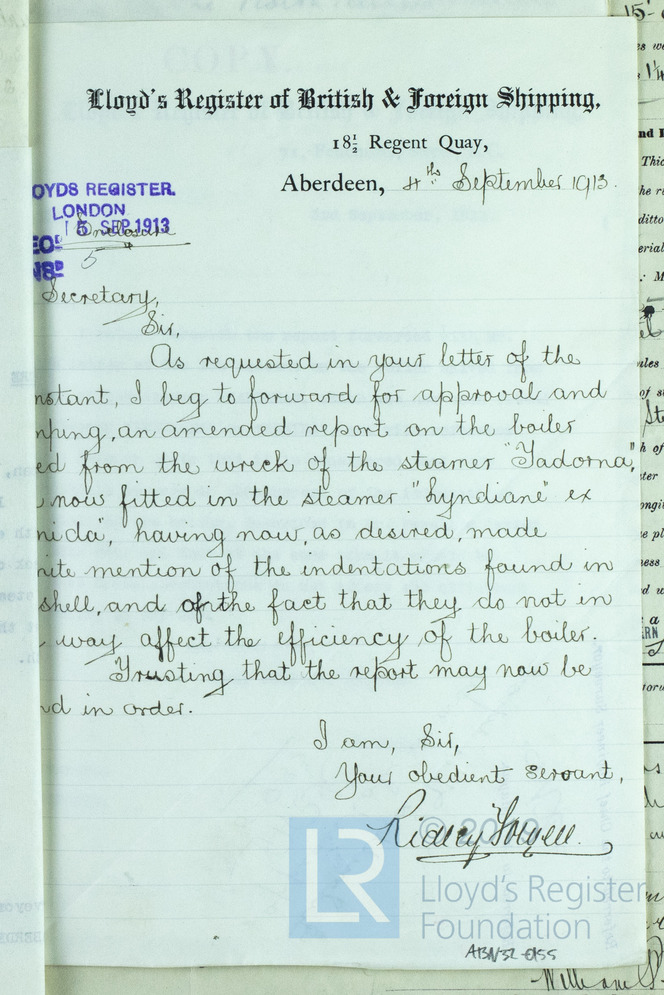 Lloyd's Register of British & Foreign Shipping,
18½ Regent Quay,
Aberdeen, 4th September 1913.
OYDS REGISTER.
LONDON
15 SEP 1913
Enclosure
5
Secretary,
Sir,
As requested in your letter of the
nstant, I beg to forward for approval and
mping, an amended report on the boiler
ed from the wreck of the steamer "Tadorna",
now fitted in the steamer "Lyndiane" ex
nida", having now, as desired, made
nite mention of the indentations found in
shell, and of the fact that they do not in
way affect the efficiency of the boiler.
Trusting that the report may now be
nd in order.
I am, Sir,
Your obedient servant,
Ridley
LR
© 20
Lloyd's Register
Foundation
ABN32-0155